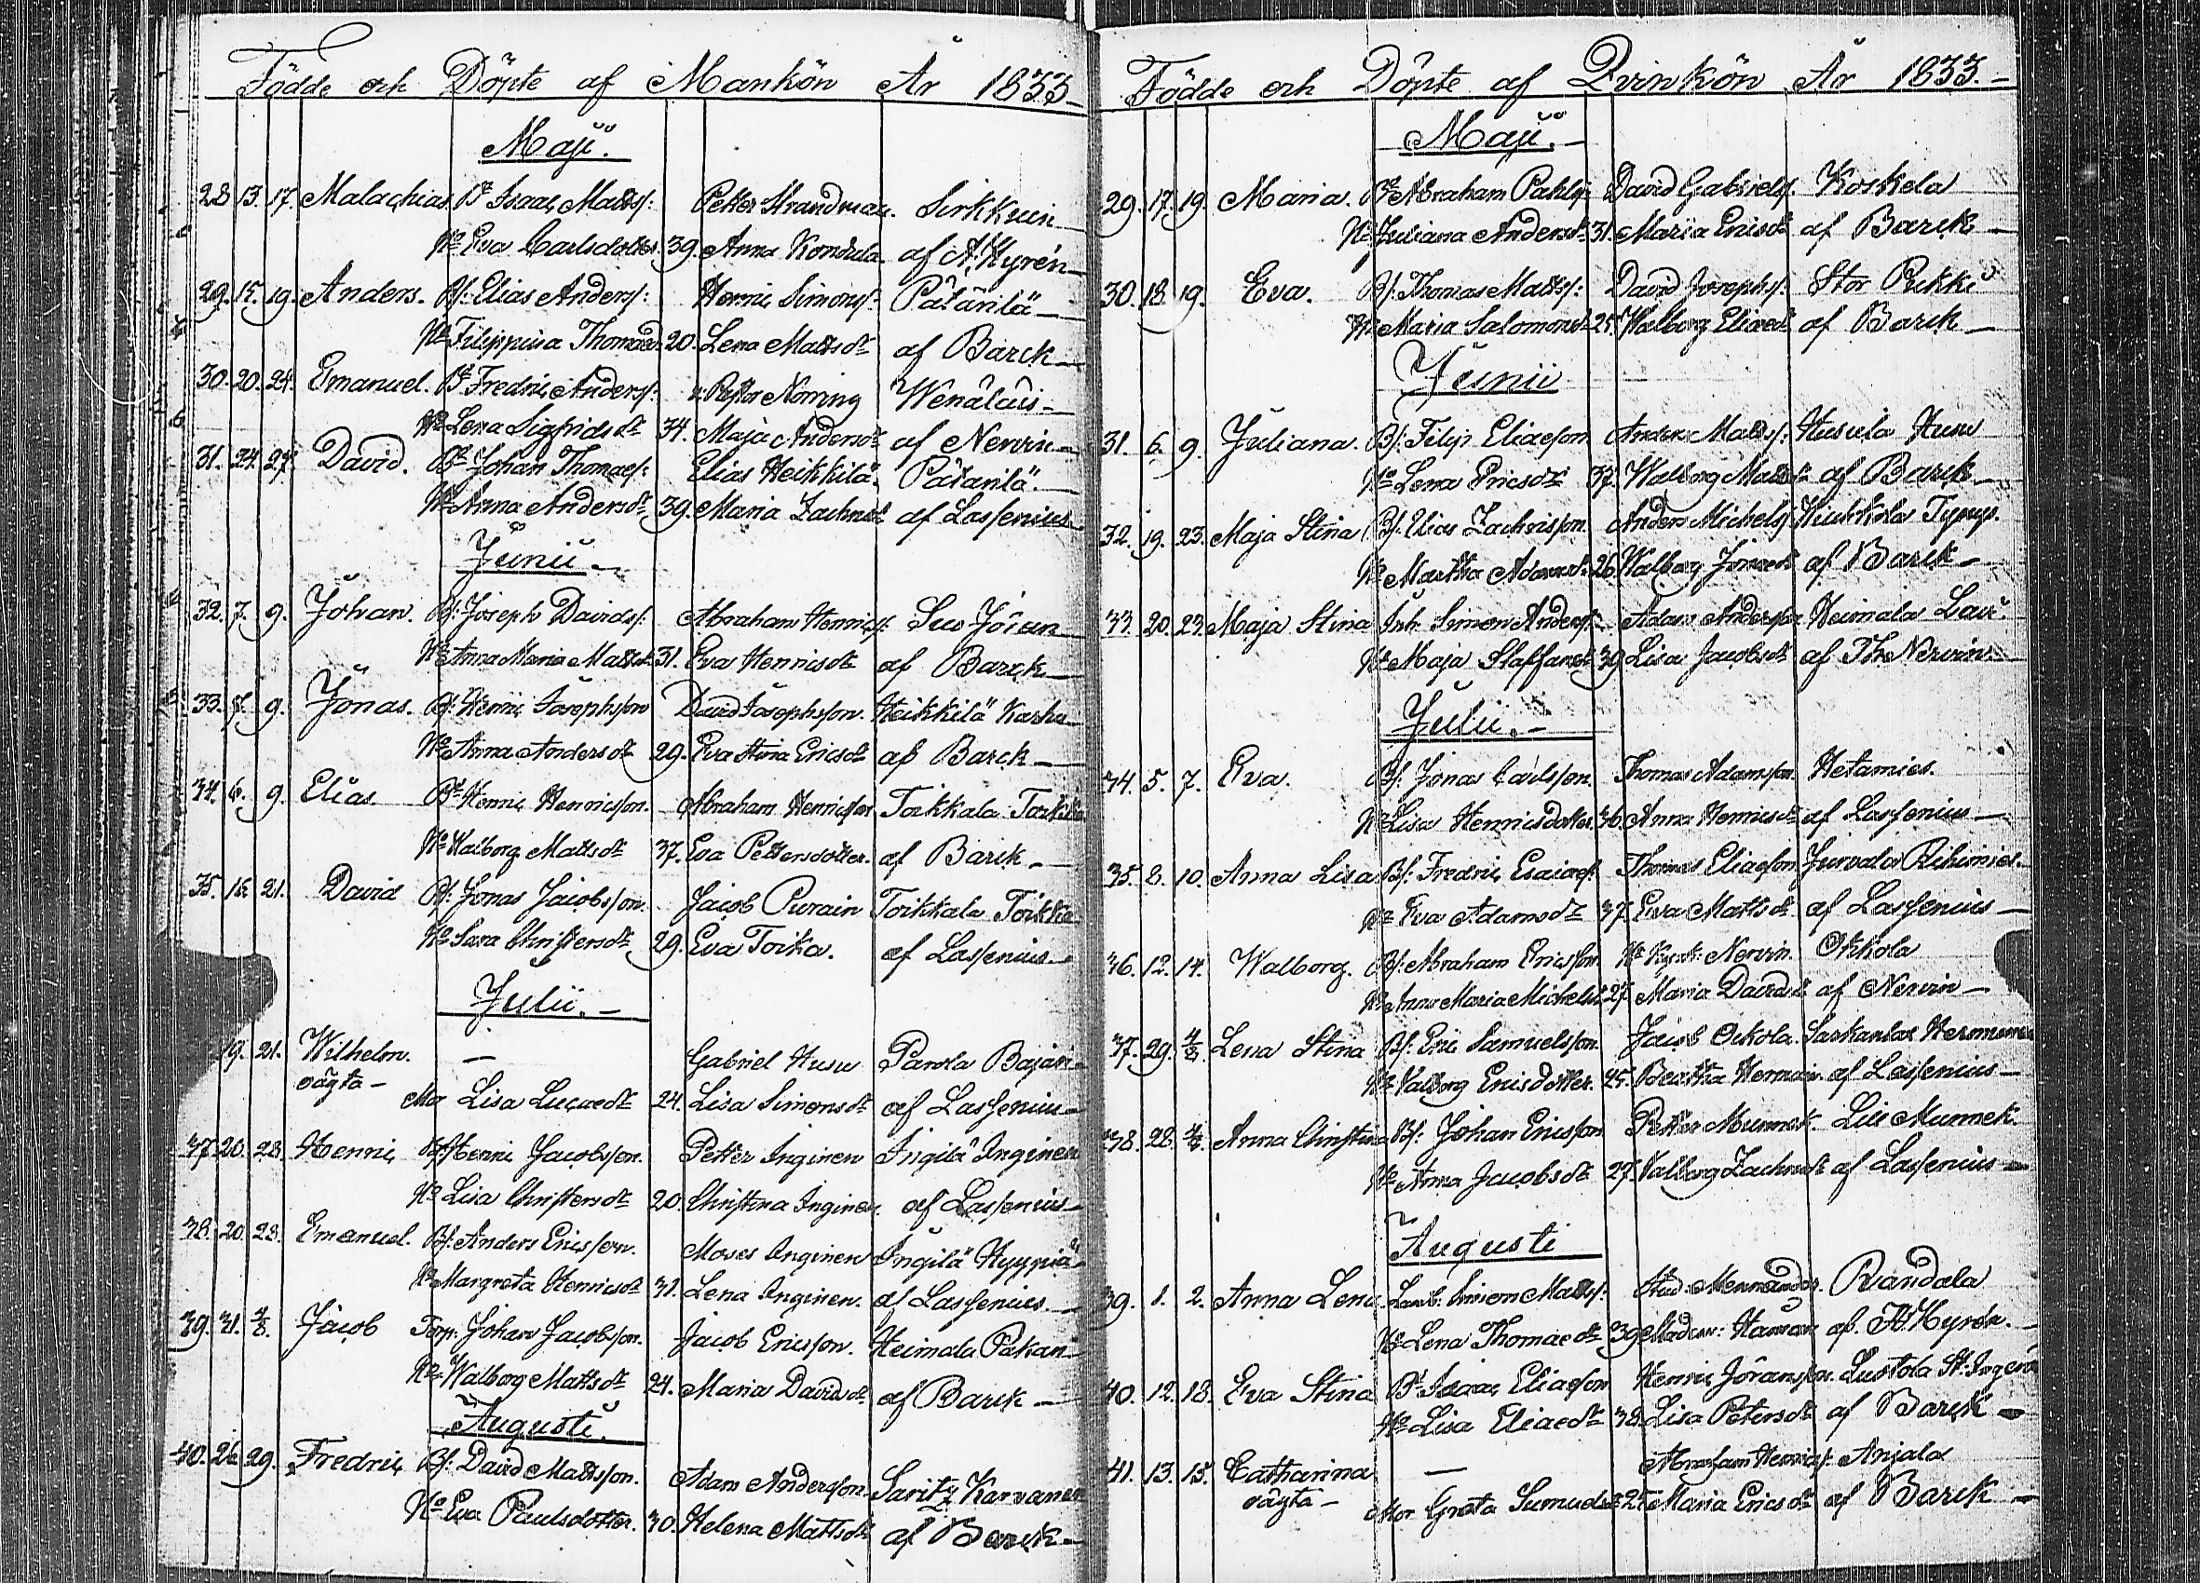 Födde och Döpte af Mankön År 1833
Maji.
28. 13. 17. Malachias. Isaac Matts: Petter Strandman. Sirkkuin
Hu Eva Carlsdotter 39. Anna Kondula af A. Hyrén
29. 15. 19. Anders. Bf. Elias Anders: Henric Simons: Pätärilä
Hu Filippina Thomæd. 20. Lena Mattsdr af Barck
30. 20. 24. Emanuel. Fredric Anders: Petter Norring Wenäläis
Hu Lena Sigfridsdr 34. Maja Andersdr af Nervin
31. 24. 27. David. Johan Thomæs: Elias Heikkilä. Pätärilä.
Hu Anna Andersdr 39. Maria Zachrisdr af Lassenius
Junii
32. 7. 9. Johan. Bf. Joseph Davids: Abraham Henrics: Suo
Hu Anna Maria Mattsdr 31. Eva Henricsdr af Barck
33. 9. Jonas. Bf. Henric Josephsson David Josephsson. Heikkilä Karhu
Hu Anna Andersdr 29. Eva Stina Ericsdr af Barck
34. 6. 9. Elias Henric Henricsson. Abraham Henricsson Toikkala
Hu Walborg Mattsdr 37. Eva Pettersdotter. af Barck
35. 21. David Bf. Jonas Jacobsson. Jacob Purain Toikkala Toikka
Hu Sara Christersdr 29. Eva Toika. af Lassenius
Julii.
19. 21. Wilhelm. — Gabriel Husu Parola
oägta – Mor Lisa Lucædr 24. Lisa Simonsdr af Lassenius
37. 20. 28. Henric Henric Jacobsson. Petter Inginen Ingilä Inginen
Hu Lisa Christersdr 20. Christina Inginen. af Lassenius
38. 20. 28. Emanuel. Bf. Anders Ericsson. Moses Inginen Ingilä Hyypiä
Hu Margreta Henricsdr 31. Lena Inginen. af Lassenius
39. 31. 4/8. Jacob Torp. Johan Jacobsson. Jacob Ericsson. Heimala Pakan
Hu Walborg Mattsdr 24. Maria Davidsdr af Barck
Augusti.
40. 26. 29. Fredric Bf. David Mattsson. Adam Andersson. Saritz Karvanen
Hu Eva Paulsdotter. 30. Helena Mattsdr af Barck
Födde och Döpte af Qvinkön År 1833.
Maji.
29. 17. 19. Maria. Abraham Pahls: David Gabriels: Koskela
Hu Juliana Andersdr 31. Maria Ericsdr af Barck
30. 18. 19. Eva. Bf. Thomas Matts: David Josephs: Stor Rikki
Hu Maria Salomonsdr 25. Walborg Eliædr af Barck
Junii
31. 6. 9. Juliana. Bf. Filip Eliæson Anders Matts: Husula Husu
Hu Lena Ericsdr 37. Walborg Mattsdr af Barck
32. 19. 23. Maja Stina Bf. Elias Zachrisson. Anders Michels:
Hu Martha Adamsdr 26. Walborg af Barck
33. 20. 23. Maja Stina Inh. Simon Anders: Adam Andersson Heimala
Hu Maja Staffansdr 39. Lisa Jacobsdr af Nervin
Julii.
34. 5. 7. Eva. Bf. Jonas Carlsson. Thomas Adamsson. Hetamies.
Hu Lisa Henricsdotter. 36. Anna Henricsdr af Lassenius
35. 8. 10. Anna Lisa Bf. Fredric Esaiæs: Thomas Eliæson Jurvala Rihimies
Hu Eva Adamsdr 37. Eva Mattsdr af Lassenius
36. 12. 14. Walborg. Bf. Abraham Ericsson. Nervin. Okkola
Hu Anna Maria Michelsdr 27. Maria Davidsdr af Nervin
37. 29. 4/8 Lena Stina Bf. Eric Samuelsson. Jacob Ockola.
Hu Valborg Ericsdotter. 45. Beatha af Lassenius
38. 28. 4/8. Anna Christina Bf. Johan Ericsson Petter Munnek. Munnek.
Hu Anna Jacobsdr 27. Valborg Zachrisdr af Lassenius
Augusti
39. 1. 2. Anna Lena Simon Matts: Mennander. Randala
Hu Lena Thomædr 39. af. A. Hyrén.
40. 12. 18. Eva Stina Isaac Eliæson Henric Göransson. Lustola
Hu Lisa Eliædr 38. Lisa Petersdr af Barck
41. 13. 15. Catharina — Abraham Henrics: Anjala
oägta – Mor Greta 25. Maria Ericsdr af Barck